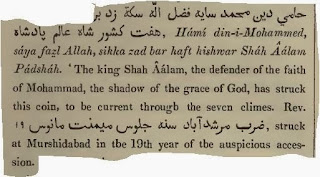 حامي دين محمد سايه فضل الله سكه زد بر
هفت كشور شاه عالم پادشاه, Hámí din-i-Mohammed,
sáya fazl Allah, sikka zad bar haft kishwar Sháh Áálam
Pádsháh. ‘The king Shah Áálam, the defender of the faith
of Mohammad, the shadow of the grace of God, has struck
this coin, to be current through the seven climes. Rev.
ضرب مرشدآباد سنه جلوس ميمنت مانوس ١٩, struck
at Murshidabad in the 19th year of the auspicious acces-
sion.